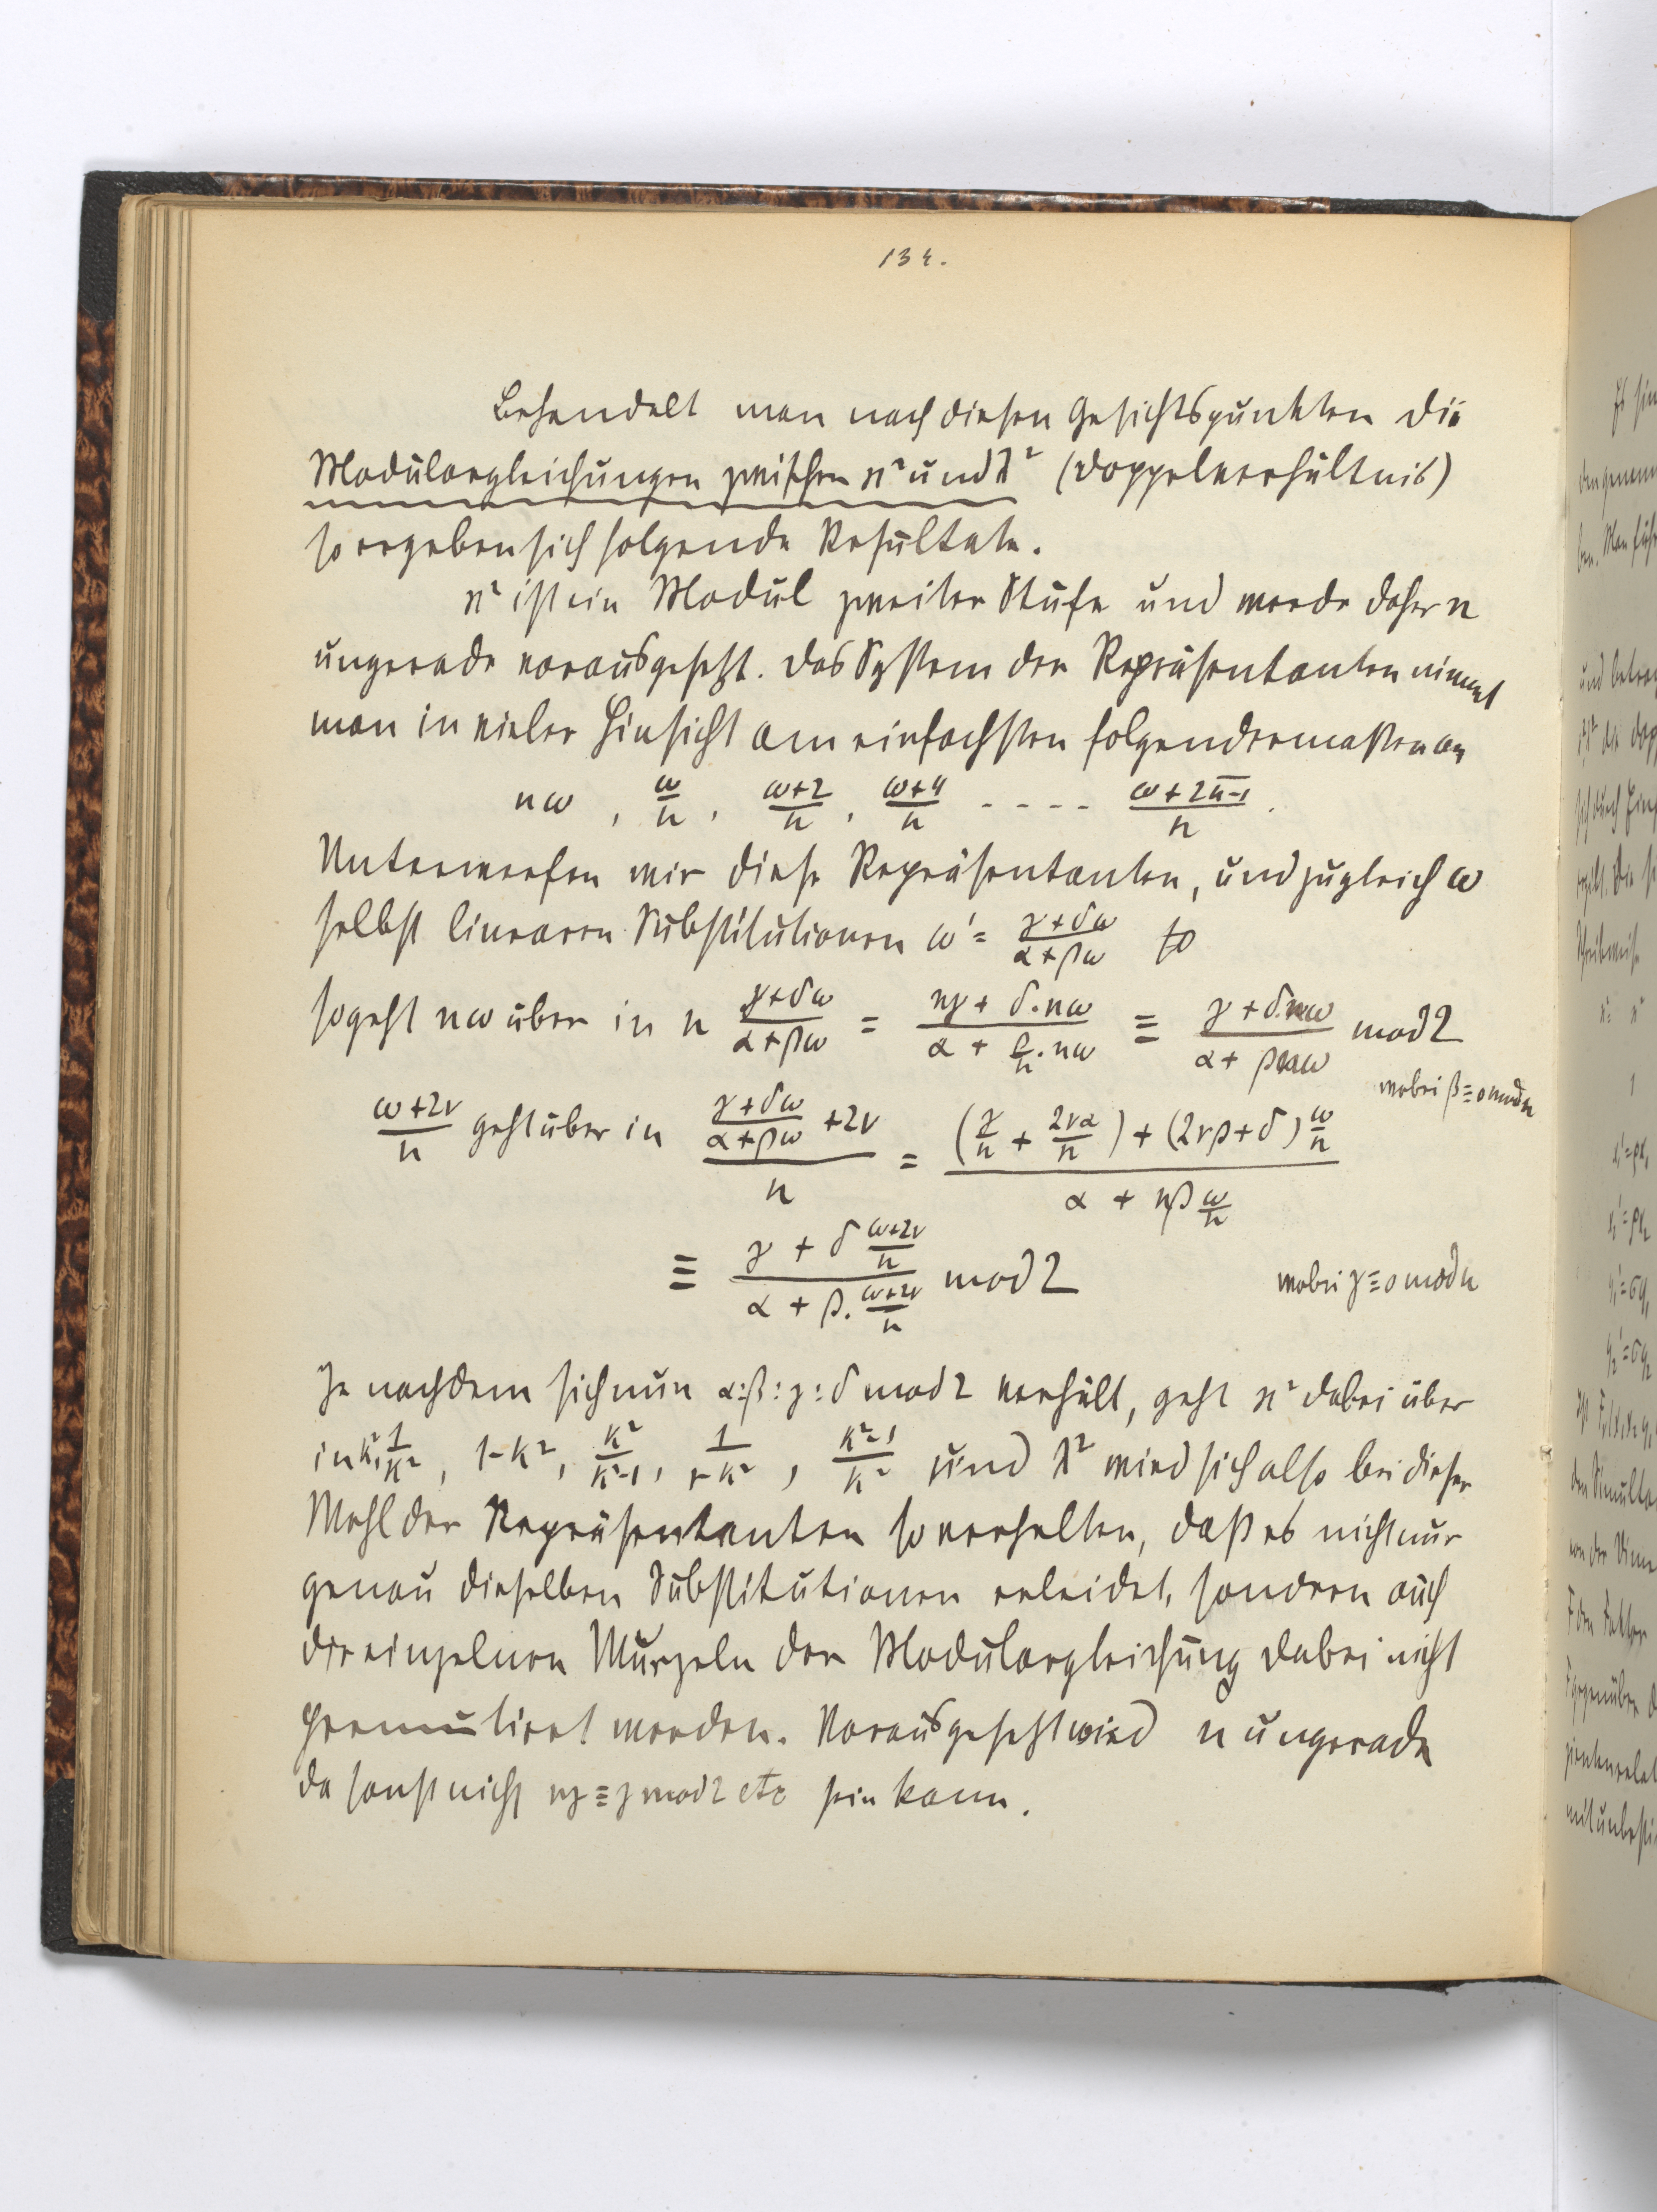 134.
Behandelt man nach diesen Gesichtspunkten die
Modulargleichungen zwischen κ² und λ² (Doppelverhältnis)
so ergeben sich folgende Resultate.
κ² ist ein Modul zweiter Stufe und werde daher n
ungerade vorausgesetzt. Das System der Repräsentanten nimmt
man in vieler Hinsicht am einfachsten folgendermaßen an
nω, ω/n, (ω+2)/n, (ω+4)/n ---- (ω+2(n-1))/n.
Unterwerfen wir diese Repräsentanten, und zugleich ω
selbst linearen Substitutionen ω' = (γ+δω)/(α+βω) so
so geht nω über in n (γ+δω)/(α+βω) = (nγ + δ·nω)/(α + β/n·nω) ≡ (γ+δ·nω)/(α+βnω) mod 2
wobei β≡0 mod n
(ω+2ν)/n geht über in ((γ+δω)/(α+βω) +2ν)/n = ((γ/n + 2να/n) + (2νβ+δ) ω/n)/(α + nβ ω/n)
≡ (γ + δ (ω+2ν)/n)/(α + β·(ω+2ν)/n) mod 2 wobei γ≡0 mod n
Je nachdem sich nun α:β:γ:δ mod 2 verhält, geht κ² dabei über
in k², 1/k², 1-k², k²/(k²-1), 1/(1-k²), (k²-1)/k² und λ² wird sich also bei dieser
Wahl der Repräsentanten so verhalten, daß es nicht nur
genau dieselben Substitutionen erleidet, sondern auch
die einzelnen Wurzeln der Modulargleichung dabei nicht
permutiert werden. Vorausgesetzt wird n ungerade
da sonst nicht nγ≡γ mod 2 etc sein kann.